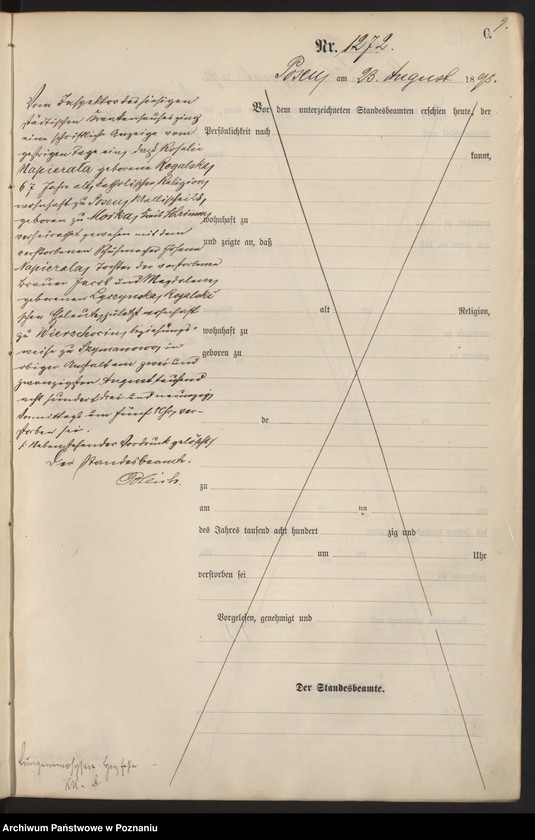 C.
Nr. 1272.
Posen am 23. August 1893.
Vom Inspektor des hiesigen
städtischen Krankenhauses ging
eine schriftliche Anzeige vom
gestrigen Tage ein, daß Rosalie
Napierala geborene Rogalska,
67 Jahre alt, katholischer Religion,
wohnhaft zu Posen, Wallischei
geboren zu
verheirathet gewesen mit dem
verstorbenen Schuhmacher Johann
Napierala, Tochter der verstorbenen
Brauer Jacob und Magdalena
geborenen Rogalski
schen Eheleute, zuletzt wohnhaft
zu Wierschocin, beziehungs-
weise zu Szymanowo, in
obiger Anstalt am zwei und
zwanzigsten August tausend
acht hundert drei und neunzig
Vormittags um fünf Uhr, ver-
storben sei.
Nebenstehender Vordruck gelöscht
Der Standesbeamte.
Vor dem unterzeichneten Standesbeamten erschien heute, der
Persönlichkeit nach
kannt,
wohnhaft zu
und zeigte an, daß
alt Religion,
wohnhaft zu
geboren zu
de
zu
am ten
des Jahres tausend acht hundert zig und
um Uhr
verstorben sei
Vorgelesen, genehmigt und
Der Standesbeamte.
Archiwum Państwowe w Poznaniu